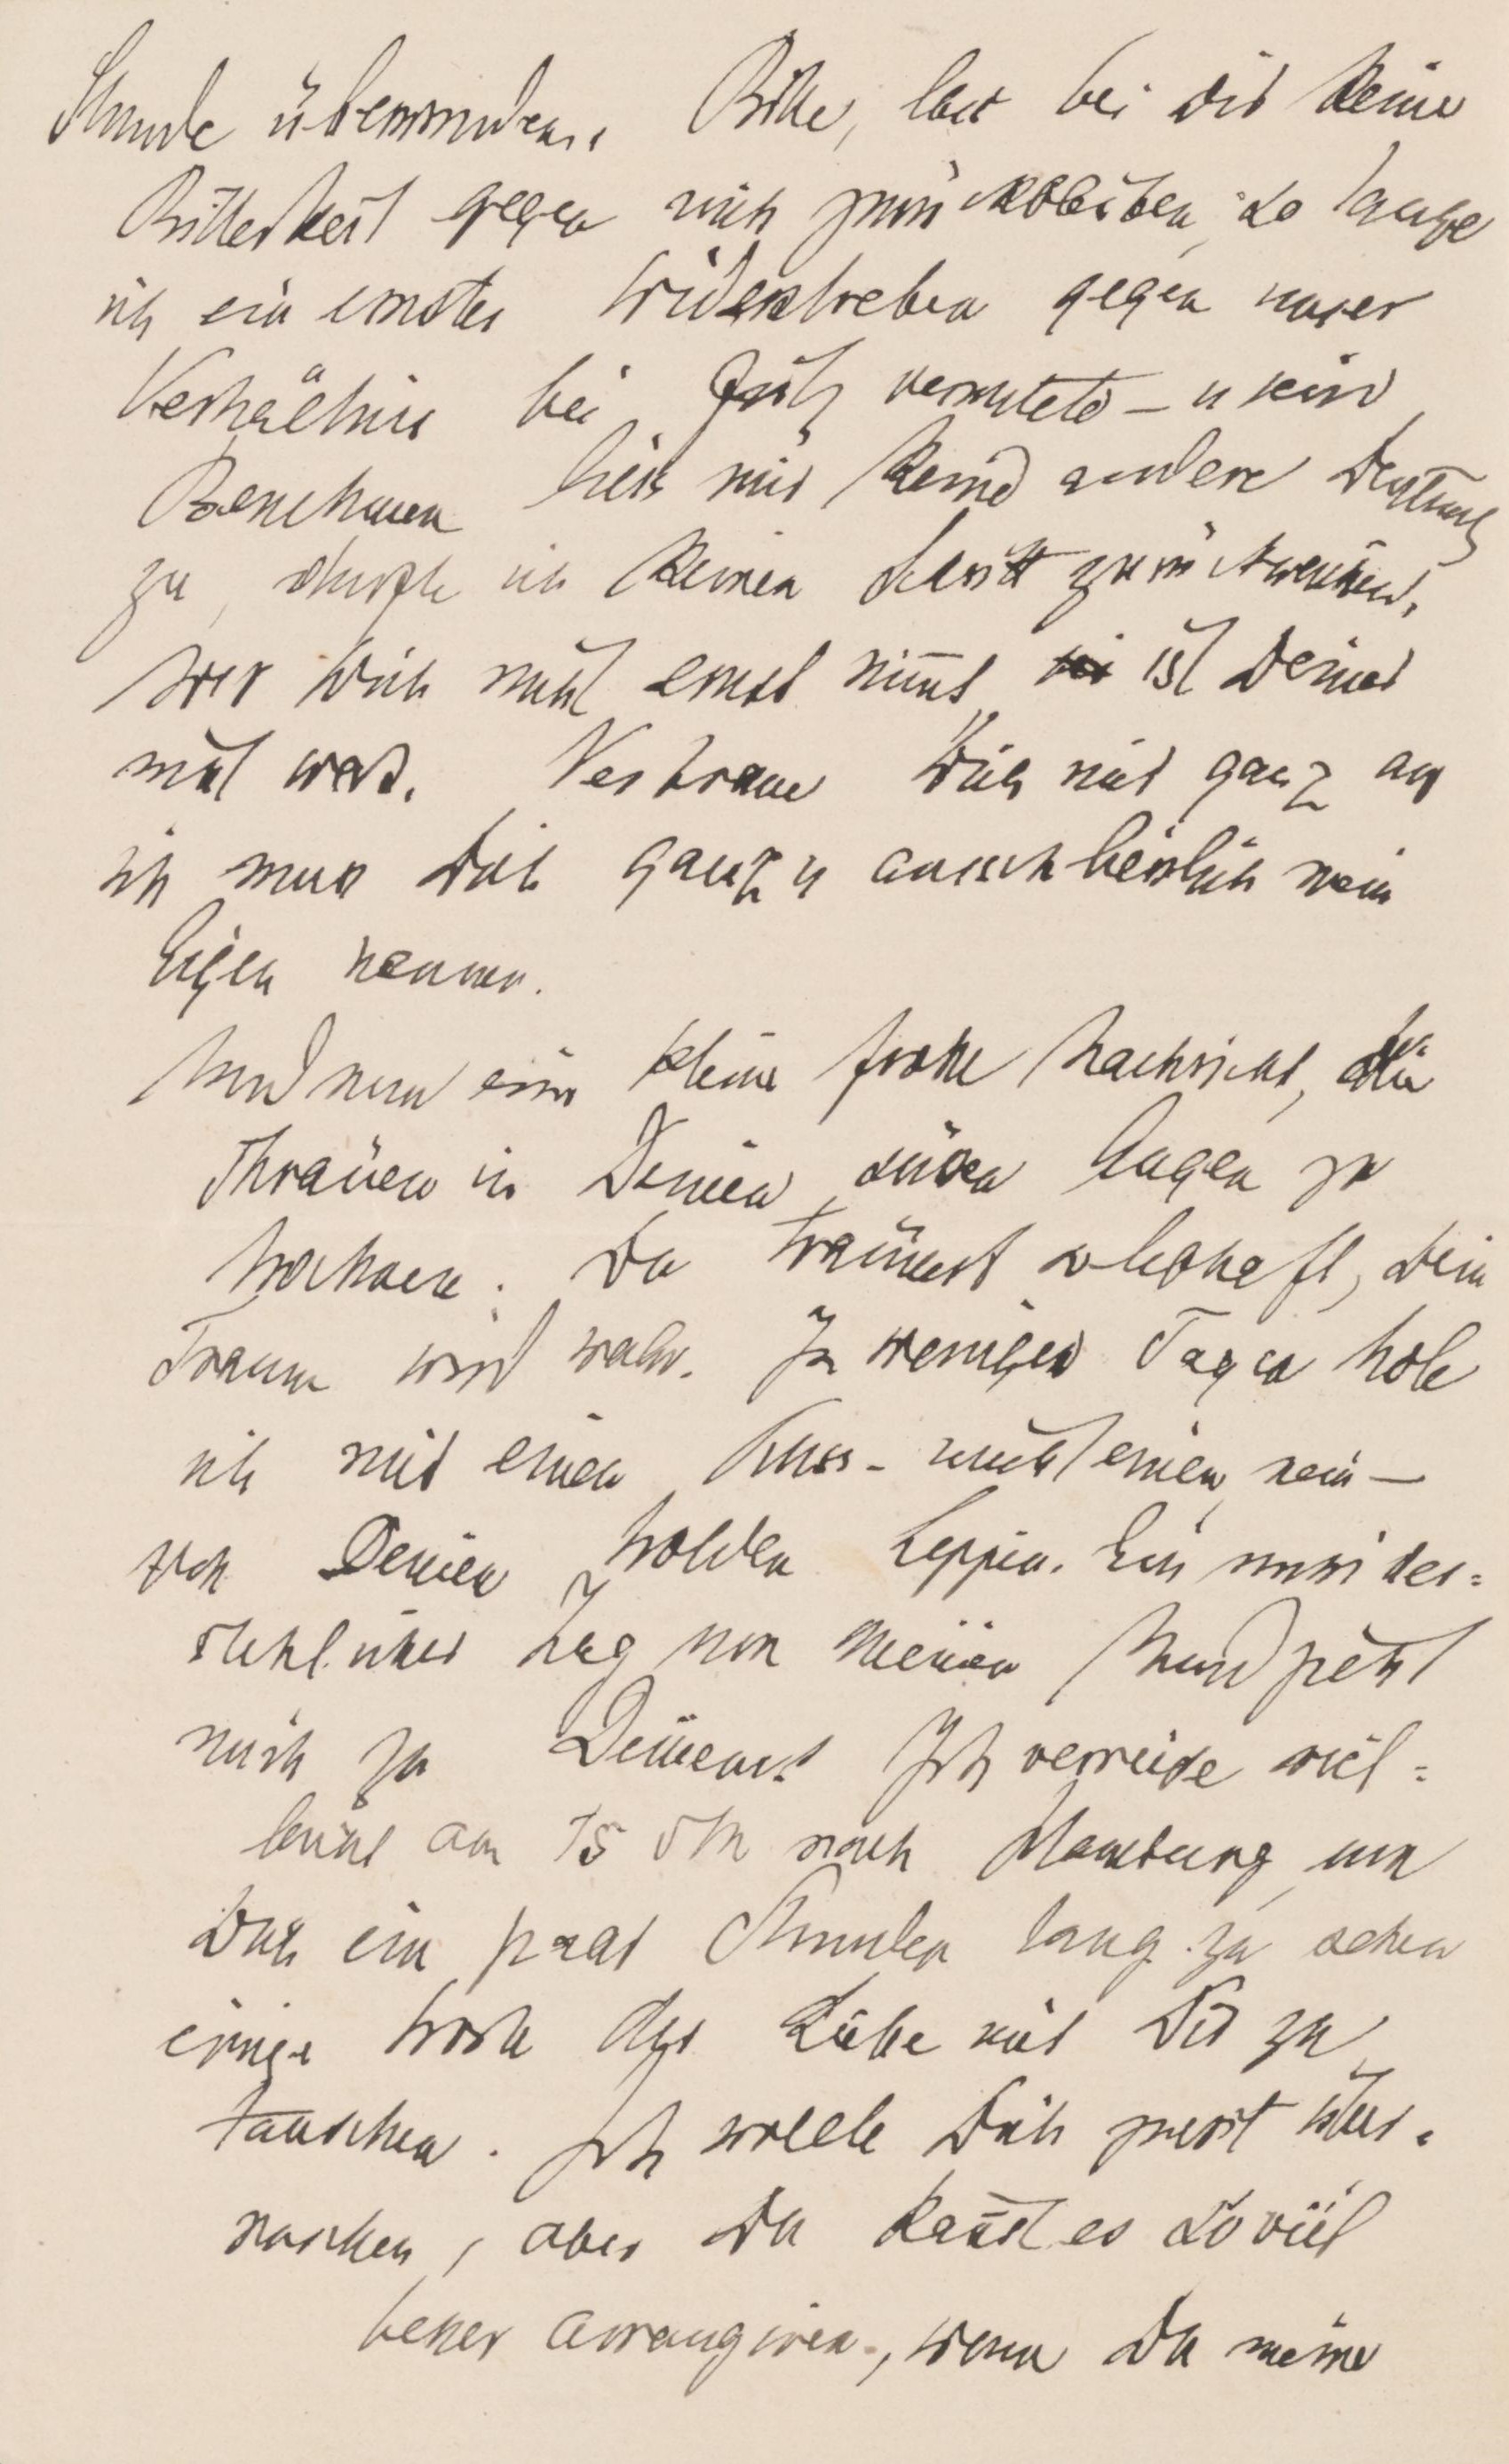 Stunde überwunden. Bitte, lass bei Dir keine
Bitterkeit gegen mich zurückbleiben, so lange
ich ein ernstes Widerstreben gegen unser
Verhältniss bei Fritz vermutete – u sein
Benehmen liess mir keine andere Deutung
zu, durfte ich keinen Schritt zurückweichen.
Wer Dich nicht ernst nim̅t, ist Deiner
nicht wert. Vertraue Dich mir ganz an
ich muss Dich ganz u ausschliesslich mein
Eigen nennen.
Und nun eine kleine frohe Nachricht, die
Thränen in Deinen süssen Augen zu
trocknen. Du träumst lebhaft, Dein
Traum wird wahr. In wenigen Tagen hole
ich mir einen Kuss – nicht einen, nein –
von Deinen holden Lippen. Ein unwider=
stehlicher Zug von meinem Mund zieht
mich zu Deinem. Ich verreise viel=
leicht am 15 dM nach Hamburg um
Dich ein paar Stunden lang zu sehen
einige Worte der Liebe mit Dir zu
tauschen. Ich wollte Dich zuerst über=
raschen, aber Du kan̅st es so viel
besser arrangiren, wenn Du meine